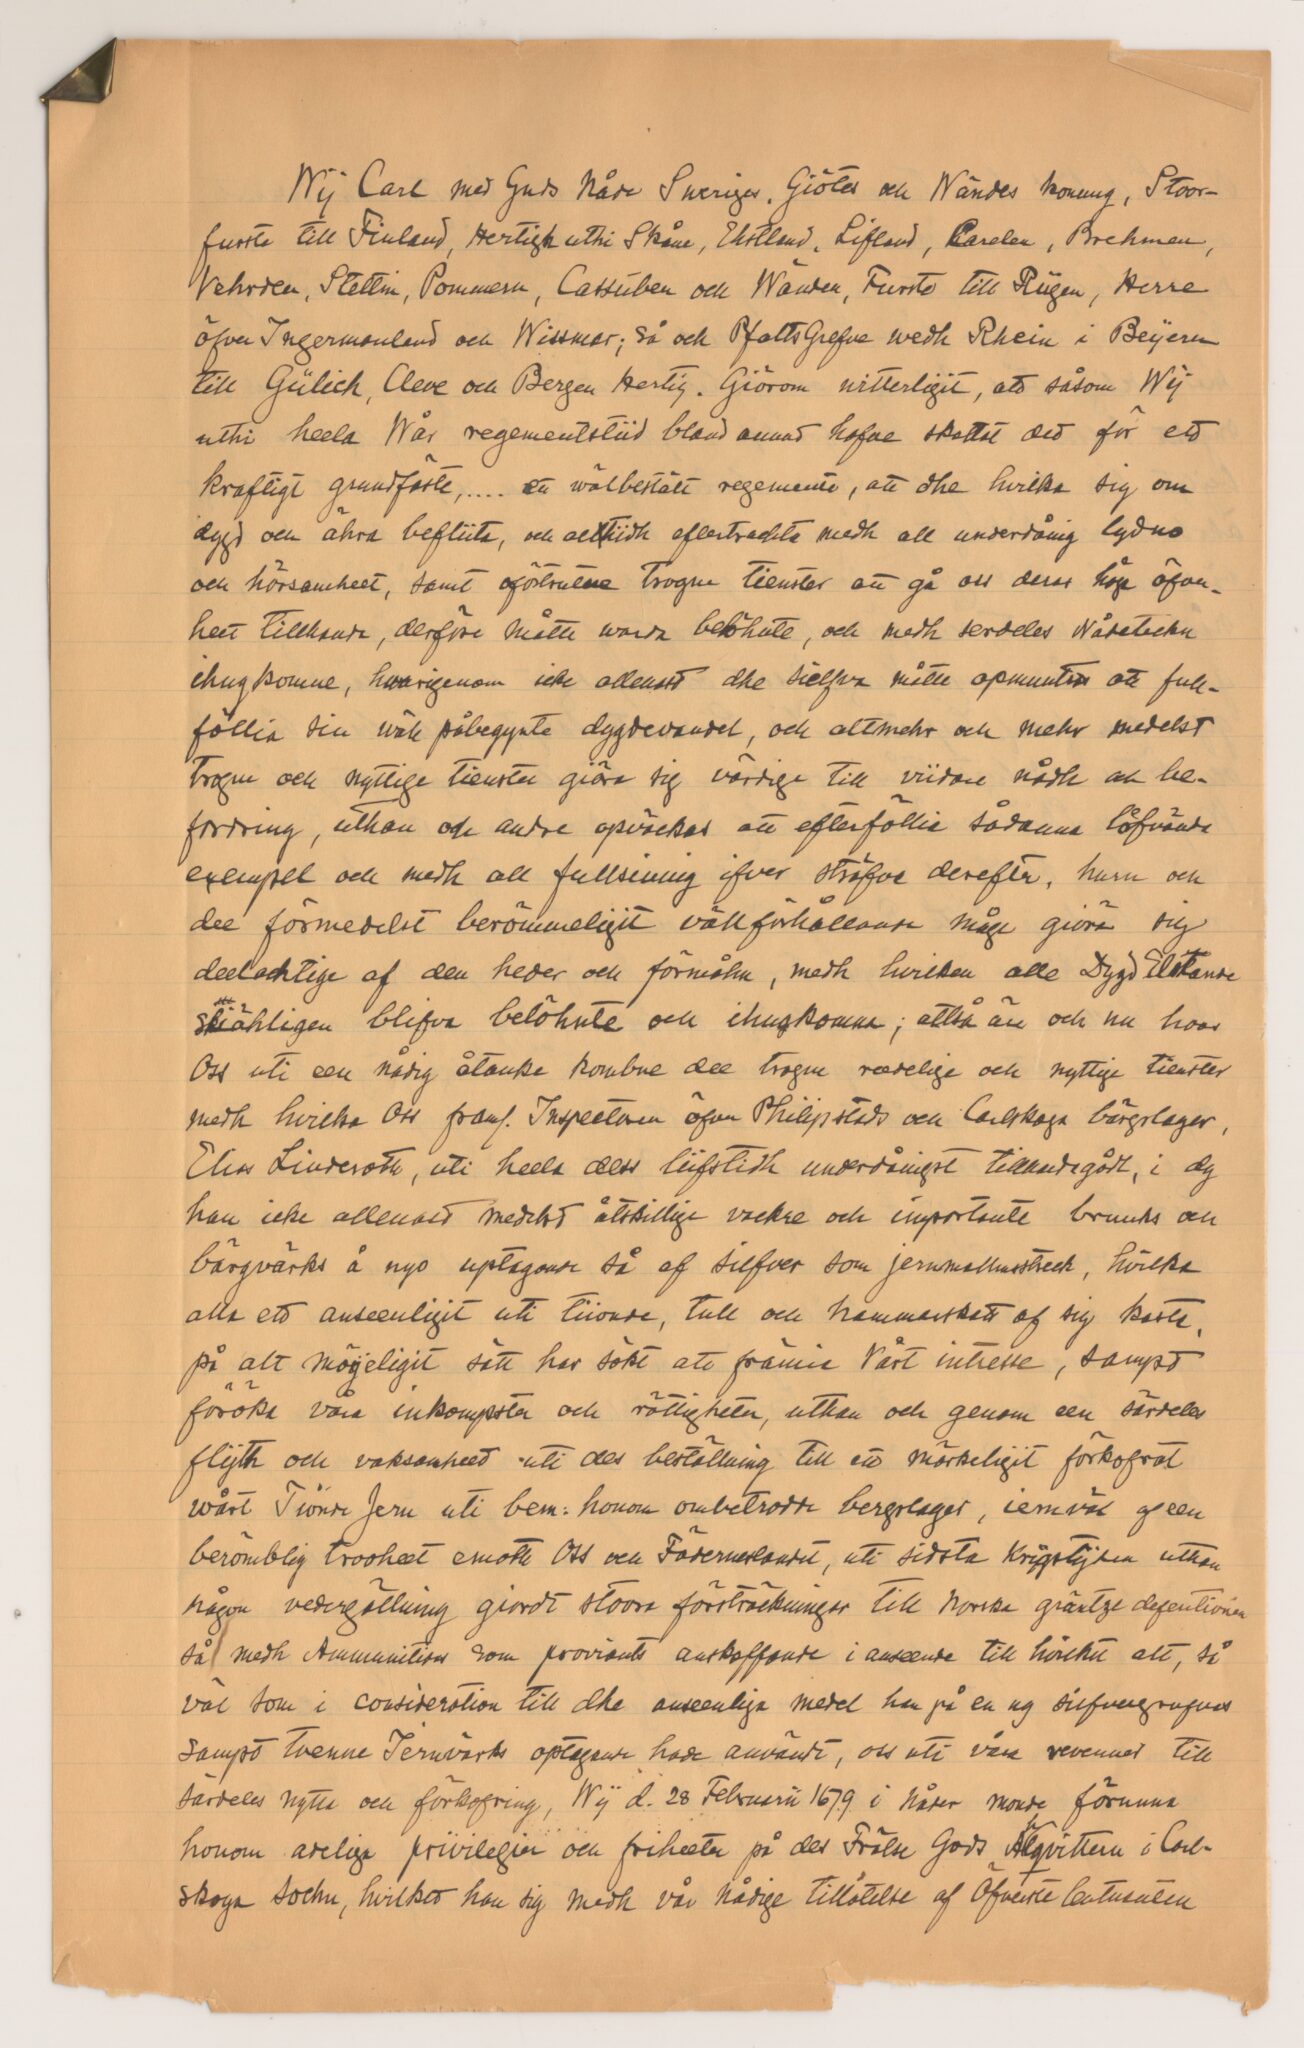 Wij Carl med Guds Nåde Sweriges, Giötes och Wändes konung, Stoor-
furste till Finland, Hertigh uthi Skåne, Ehstland, Lifland, Carelen, Brehmen,
Vehrden, Stettin, Pommern, Cassuben och Wänden, Furste till Rügen, Herre
öfver Ingermanland och Wissmar; Så och PfaltsGrefve wedh Rhein i Beijern
till Gülich, Cleve och Bergen Hertig. Giörom witterligit, att såsom Wij
uthi heela Wår regementstiid bland annat hafve skattat det för ett
kraftigt grundfäste, .... ett wälbestält regemente, att dhe hvilka sig om
dygd och ähra beflijta, och alltiidh eftertrachta medh all underdånig lydno
och hörsamheet, samt oförtrutne trogne tienster att gå oss deras höga öfver-
heet tillhanda, derföre måtte warda belöhnte, och medh serdeles Nådetecken
ihugkomne, hwarigenom icke allenast dhe sielfva måtte opmuntras att full-
föllia sin wäll påbegynte dygdevandel, och altmehr och mehr medelst
trogne och nyttige tienster giöra sig värdige till viidare nådh och be-
fordring, uthan och andre opväckas att efterföllia sådanna låfvärda
exempel och medh all fullsinnig ifver sträfva derefter, huru och
dee förmedelst berömmeligit vällförhållande måge giöra sig
deelachtige af den heder och förmåhn, medh hvilken alle Dygd Elskande
skiähligen blifva belöhnte och ihugkomna; altså äre och nu hoos
Oss uti een nådig åtanke kombne dee trogne redelige och nyttige tienster
medh hvilka Oss framl. Inspectoren öfver Philipstads och Carlskoga bärgslager,
Elias Linderoth, uti heela dess liifstidh underdånigst tillhandagådt, i dy
han icke allenast medelst åtskillige vackre och importante bruuks och
bärgvärks å nyo uptagande så af silfver som jernmalmsstreck, hvilka
alla ett anseenligit uti tiionde, tull och hammarskatt af sig kasta,
på alt möijeligit sätt har sökt att främia Vårt intresse, sampt
föröka våra inkompster och rättigheter, uthan och genom een särdeles
flijth och vaksamheet uti des beställning till ett märkeligit förkofrat
wårt Tiönde Jern uti bem: honom ombetrodde bergslager, iemväl af een
berömblig trooheet emoth Oss och Fäderneslandet, uti sidsta Krigstijden uthan
någon vedergällning giordt stoora försträckningar till Norska gräntze defentionen
så medh Ammunitions som proviants anskaffande i anseende till hvilket alt, så
väl som i consideration till dhe anseenliga medel han på en ny silfvergrufvas
sampt tvenne Jernvärks optagande hade användt, oss uti våra revenues till
särdeles nytta och förkofring, Wij d. 28 Februarii 1679 i Nåder monde förunna
honom adeliga privilegier och friheeter på des Frälse Gods Älqvittern i Carl-
skoga Sochn, hvilket han sig medh vår Nådige tillåtelse af Öfverste leutnanten